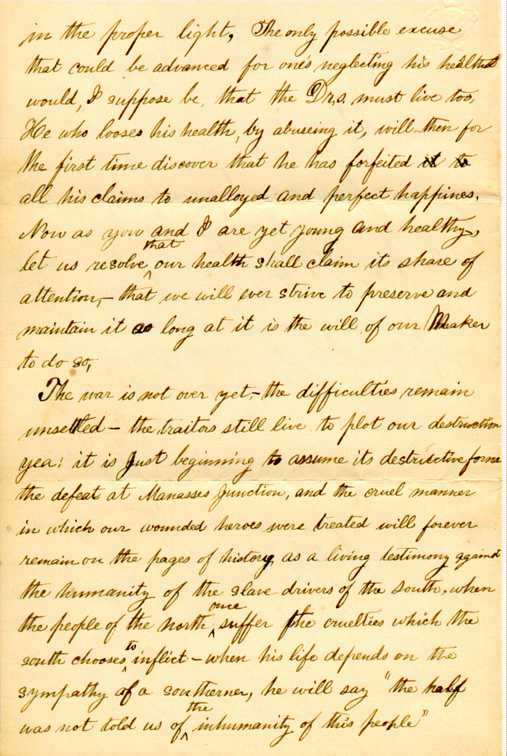 in the proper light, The only possible excuse
that could be advanced for one's neglecting his health
would, I suppose be, that the Drs. must live too,
He who looses his health, by abuseing it, will then for
the first time discover that he has forfeited
all his claims to unalloyed and perfect happines.
Now as you and I are yet young and healthy,
let us resolve that our health shall claim its share of
attention, – that we will ever strive to preserve and
maintain it as long at it is the will of our Maker
to do so,
The war is not over yet, – the difficulties remain
unsettled – the traitors still live to plot our destruction
yea! it is Just beginning to assume its destructive forme
the defeat at Manasses Junction, and the cruel manner
in which our wounded heroes were treated will forever
remain on the pages of history, as a living testimony against
the humanity of the slave drivers of the south. when
the people of the north once suffer the cruelties which the
south chooses to inflict – when his life depends on the
sympathy of a southerner, he will say "the half
was not told us of the inhumanity of this people"